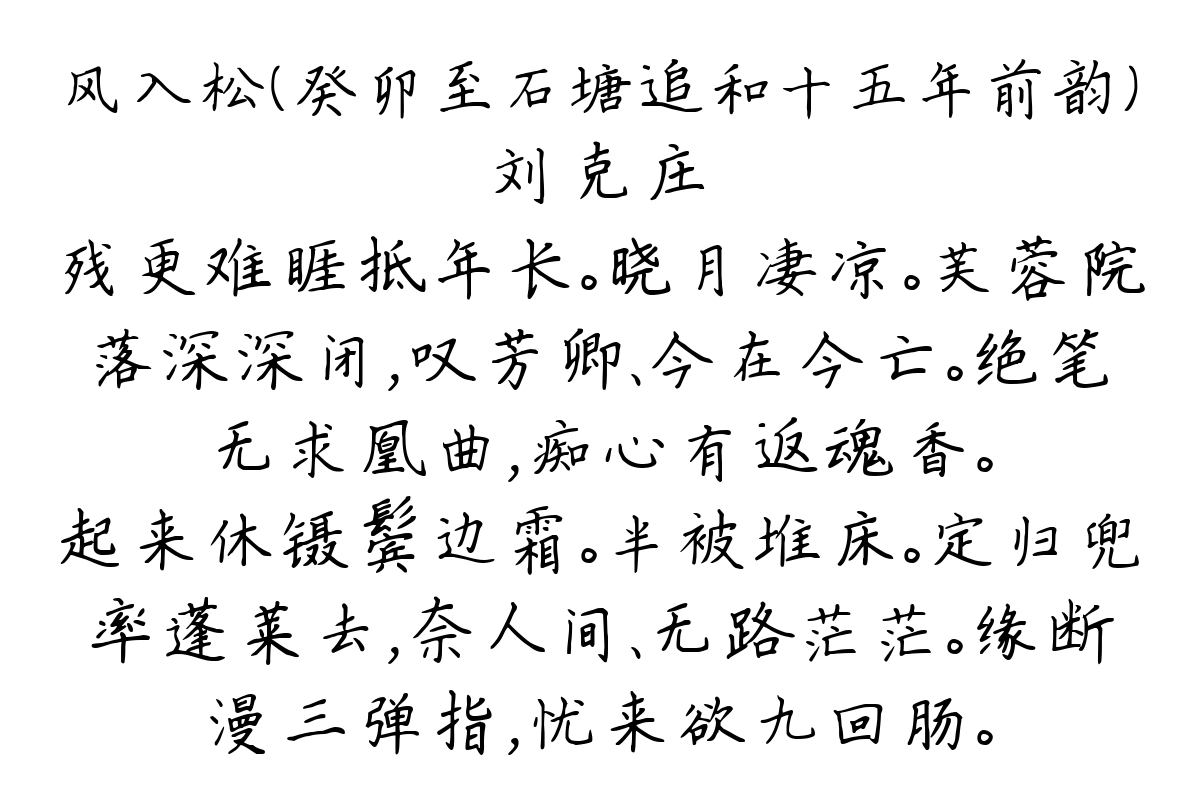 风入松(癸卯至石塘追和十五年前韵)
刘克庄
残更难睚抵年长。晓月凄凉。芙蓉院
落深深闭,叹芳卿、今在今亡。绝笔
无求凰曲,痴心有返魂香。
起来休镊鬓边霜。半被堆床。定归兜
率蓬莱去,奈人间、无路茫茫。缘断
漫三弹指,忧来欲九回肠。